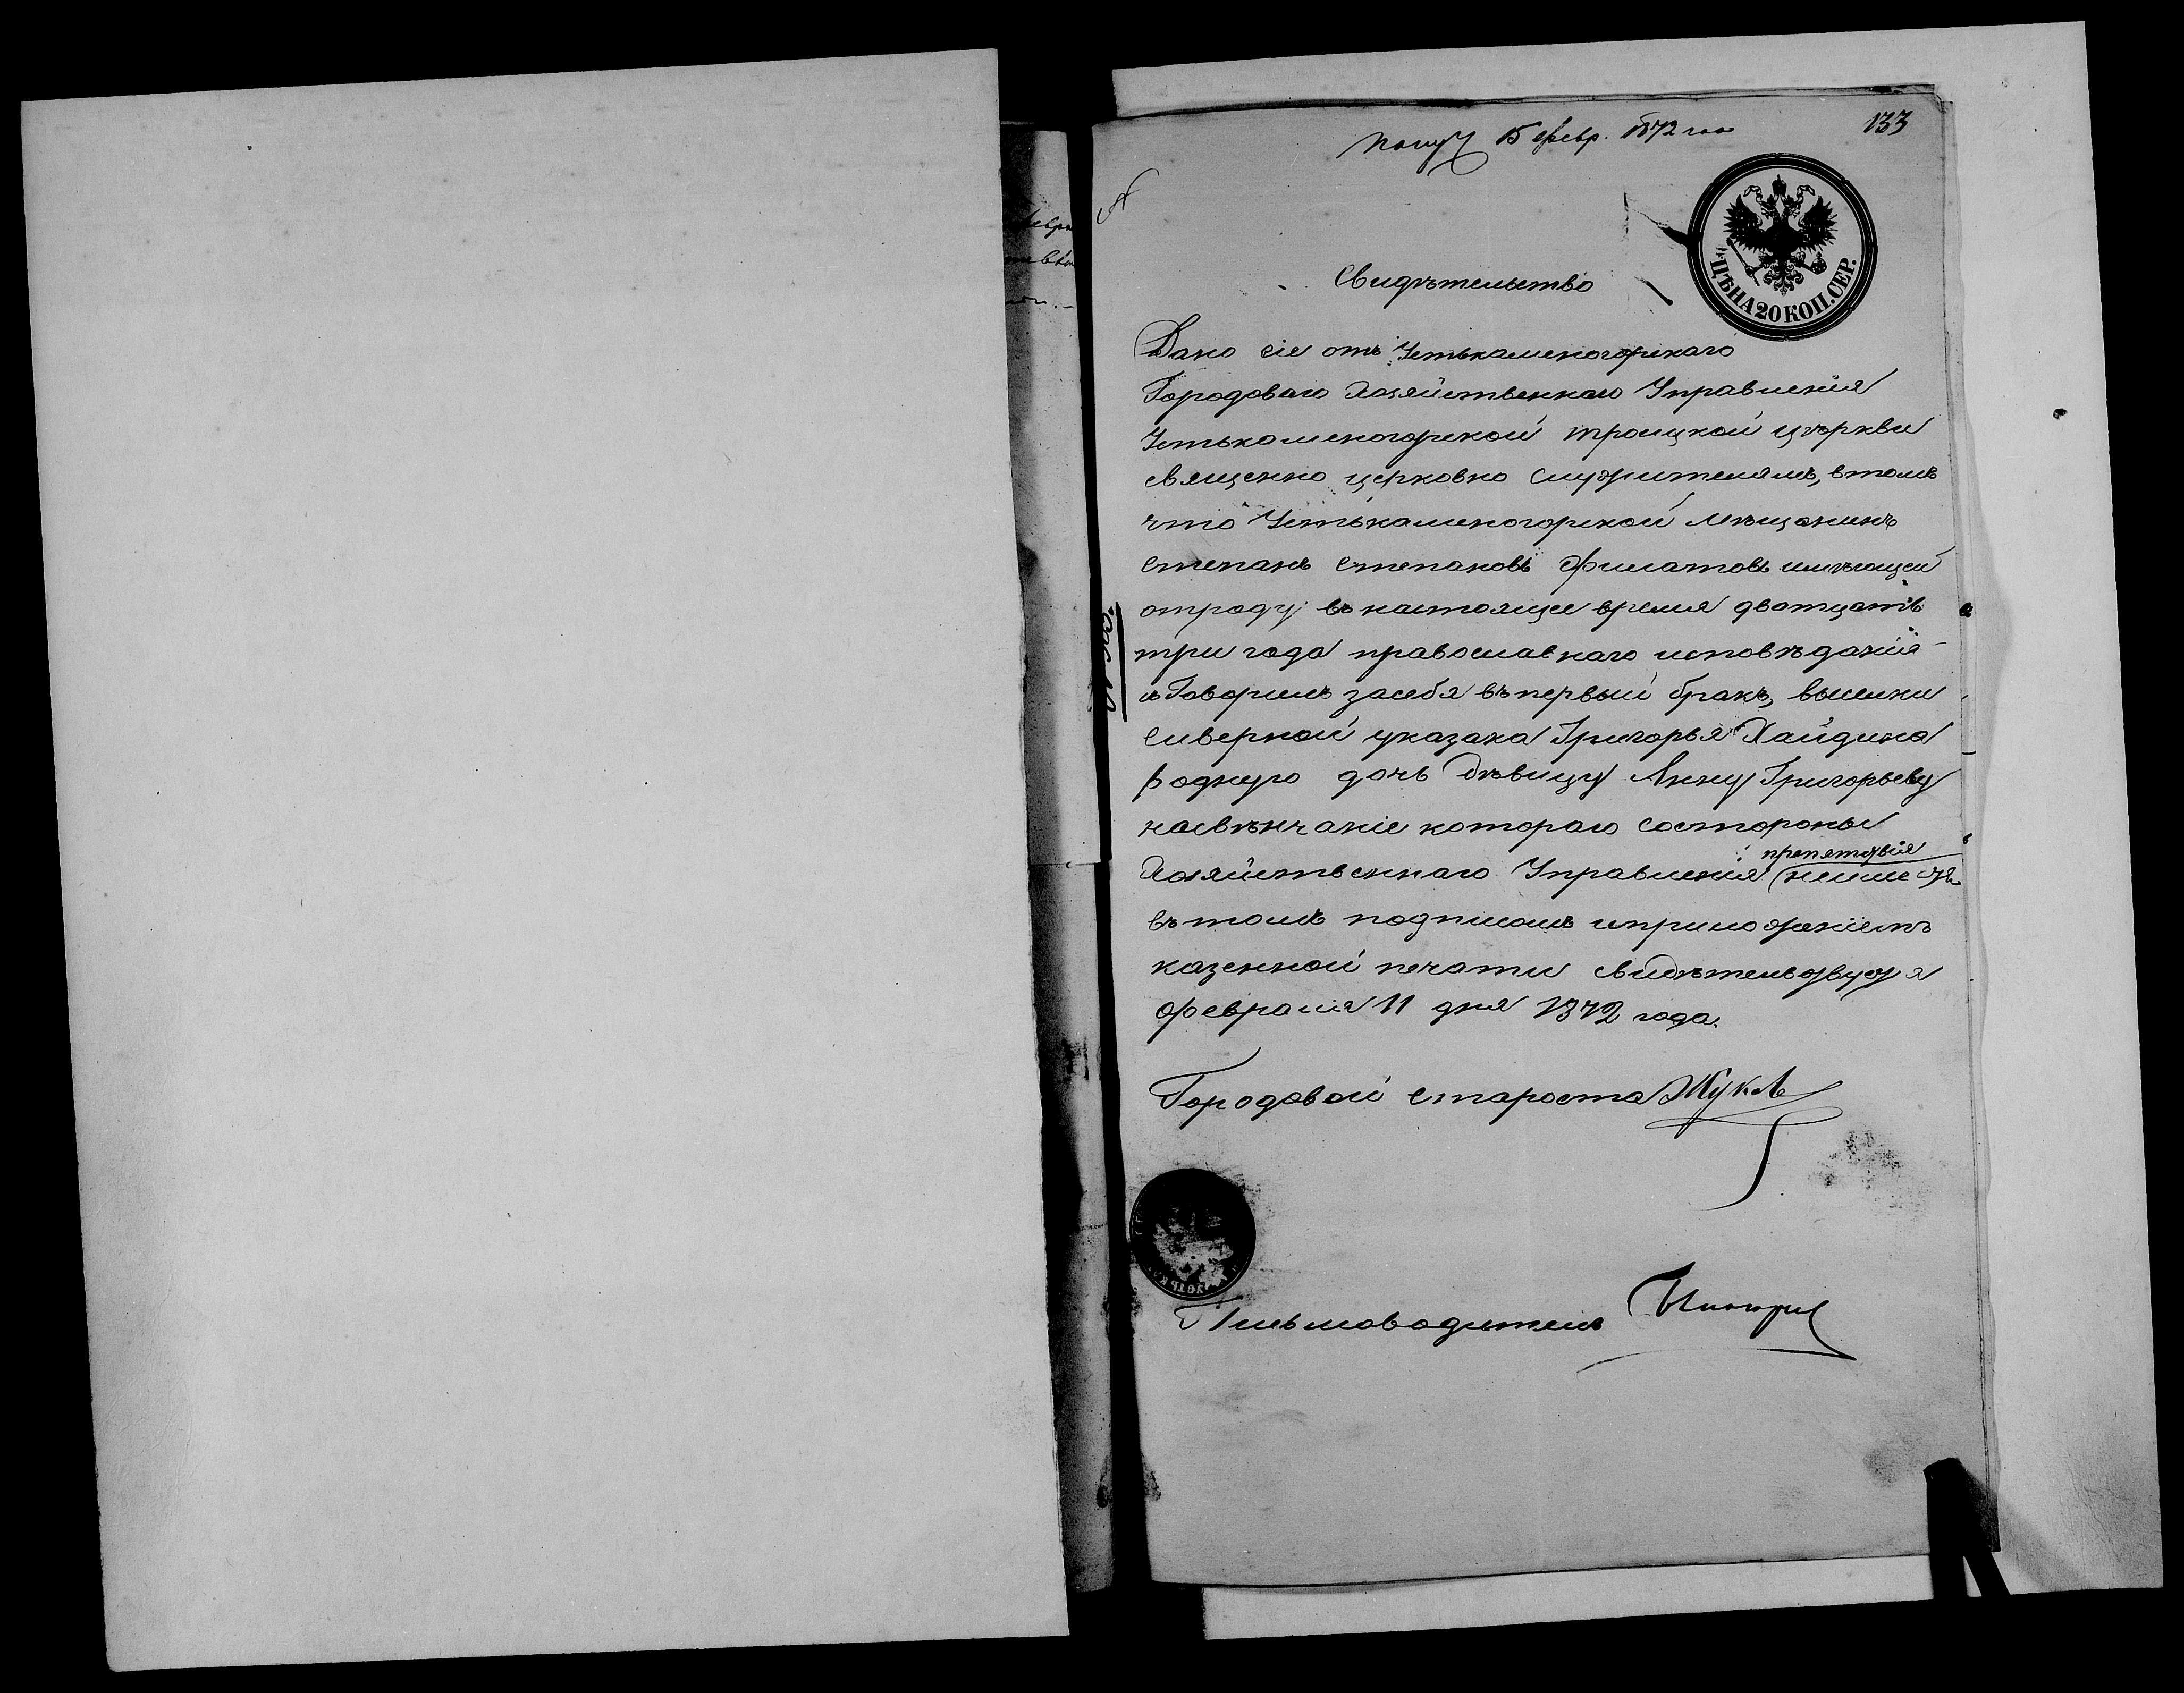 Получ 15 февр. 1872 года
133
ЦѢНА 20 КОП. СЕР.
Свидѣтельство
Дано сіе отъ Устькаменогорскаго
Городоваго Хозяйственнаго Управленія
Устькаменогорской троицкой цѣркви
священно церковно служителямъ, втомъ
что Устькаменогорской мѣщанинъ
степанъ степановъ Филатовъ имѣющей
отроду въ настоящее время дватцать
три года православнаго исповѣданія
и Говорилъ засебя въ первый бракъ,
сиверной указака Григорья Хайдина
родную дочь дѣвицу Анну Григорьеву
насвѣнчаніе котораго состороны
препятствія
Хозяйственнаго Управленія
въ томъ подписомъ иприложеніемъ
казенной печати свидѣтельствуется
февраля 11 дня 1872 года.
Городовой староста Жуковъ
Письмоводитель